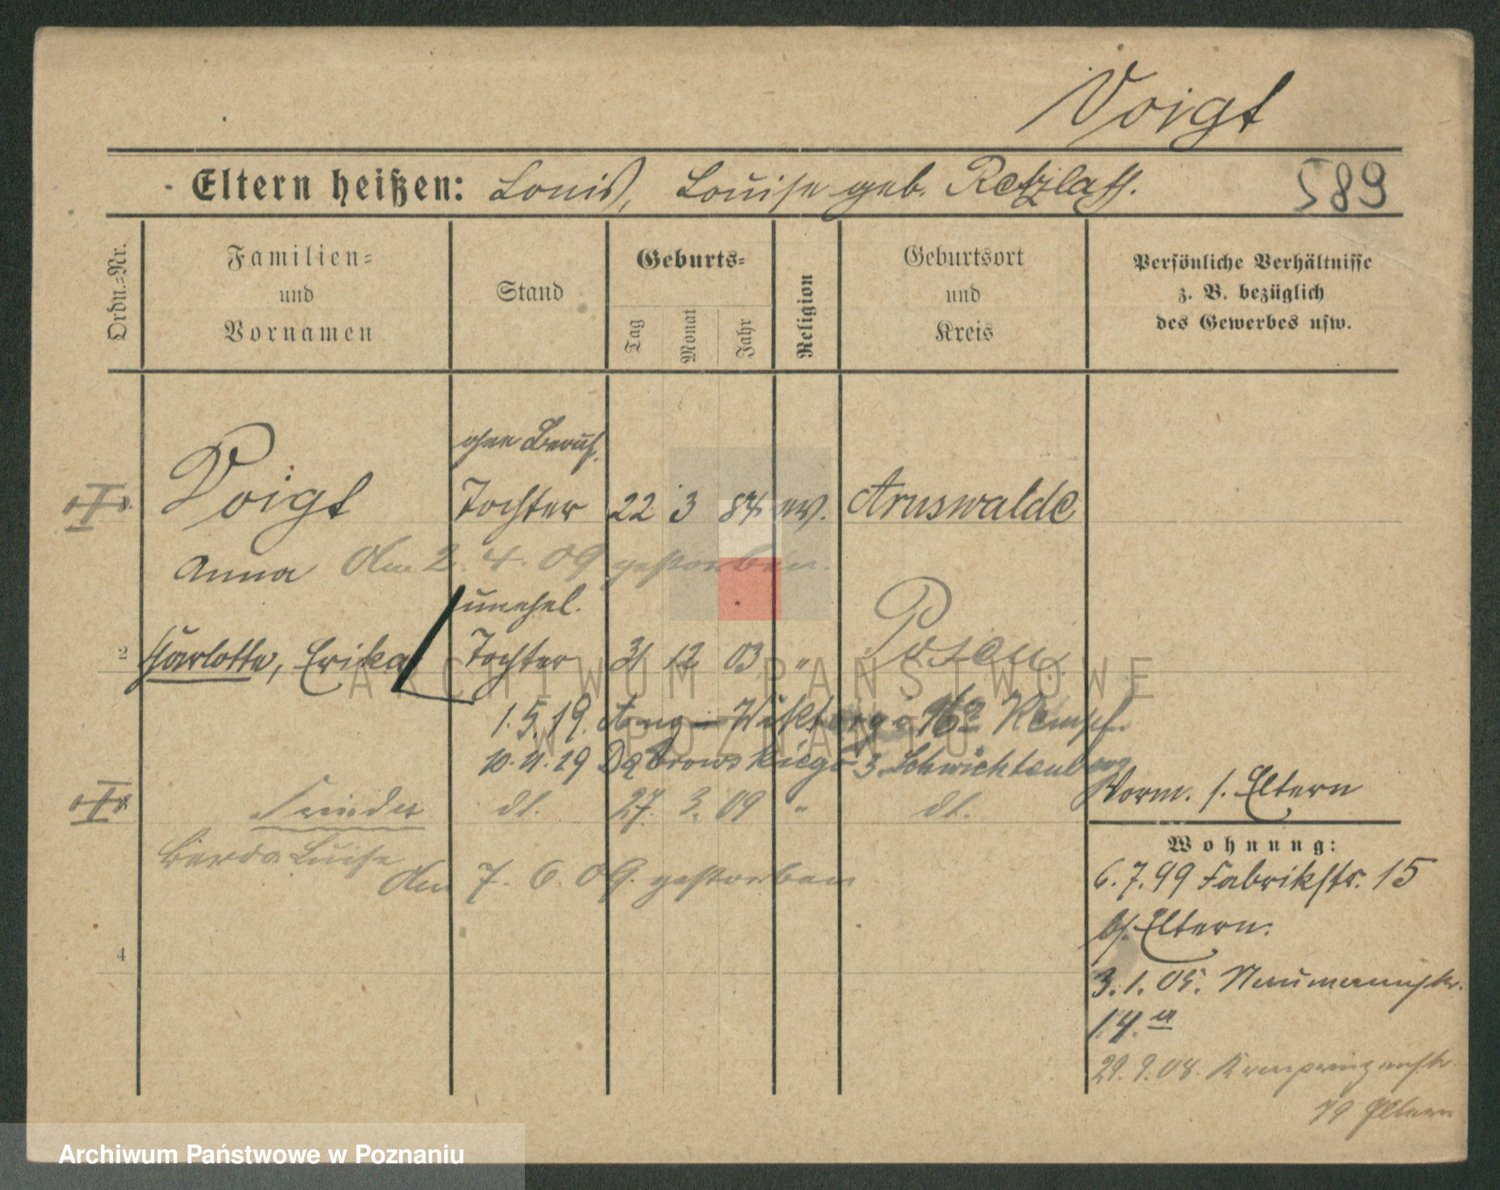 Voigt
Eltern heißen: Louis, Louise geb. Retzlaff.
589
Ordn.=Nr.
Familien=
und
Vornamen
Stand
Geburts=
Tag
Monat
Jahr
Religion
Geburtsort
und
Kreis
Persönliche Verhältnisse
z. B. bezüglich
des Gewerbes usw.
ohne Beruf.
Voigt Tochter 22 3 84 ev. Arnswalde
Anna Am 2. 4. 09 gestorben.
unehel.
2 Charlotte, Erika Tochter 31 12 03 " Posen
1.5.19. 16a Kempf
10.11.19 Dąbrowskiego 3. Schwichtenberg
dt. 27. 3. 09 " dt.
Gerda Luise
Am 7. 6. 09. gestorben
4
Vorm. s. Eltern
Wohnung:
6.7.99 Fabrikstr. 15
b/ Eltern.
3.1.05. Naumannstr.
14.a
29.9.08. Kronprinzenstr.
79 Eltern
ARCHIWUM PAŃSTWOWE
W POZNANIU
Archiwum Państwowe w Poznaniu